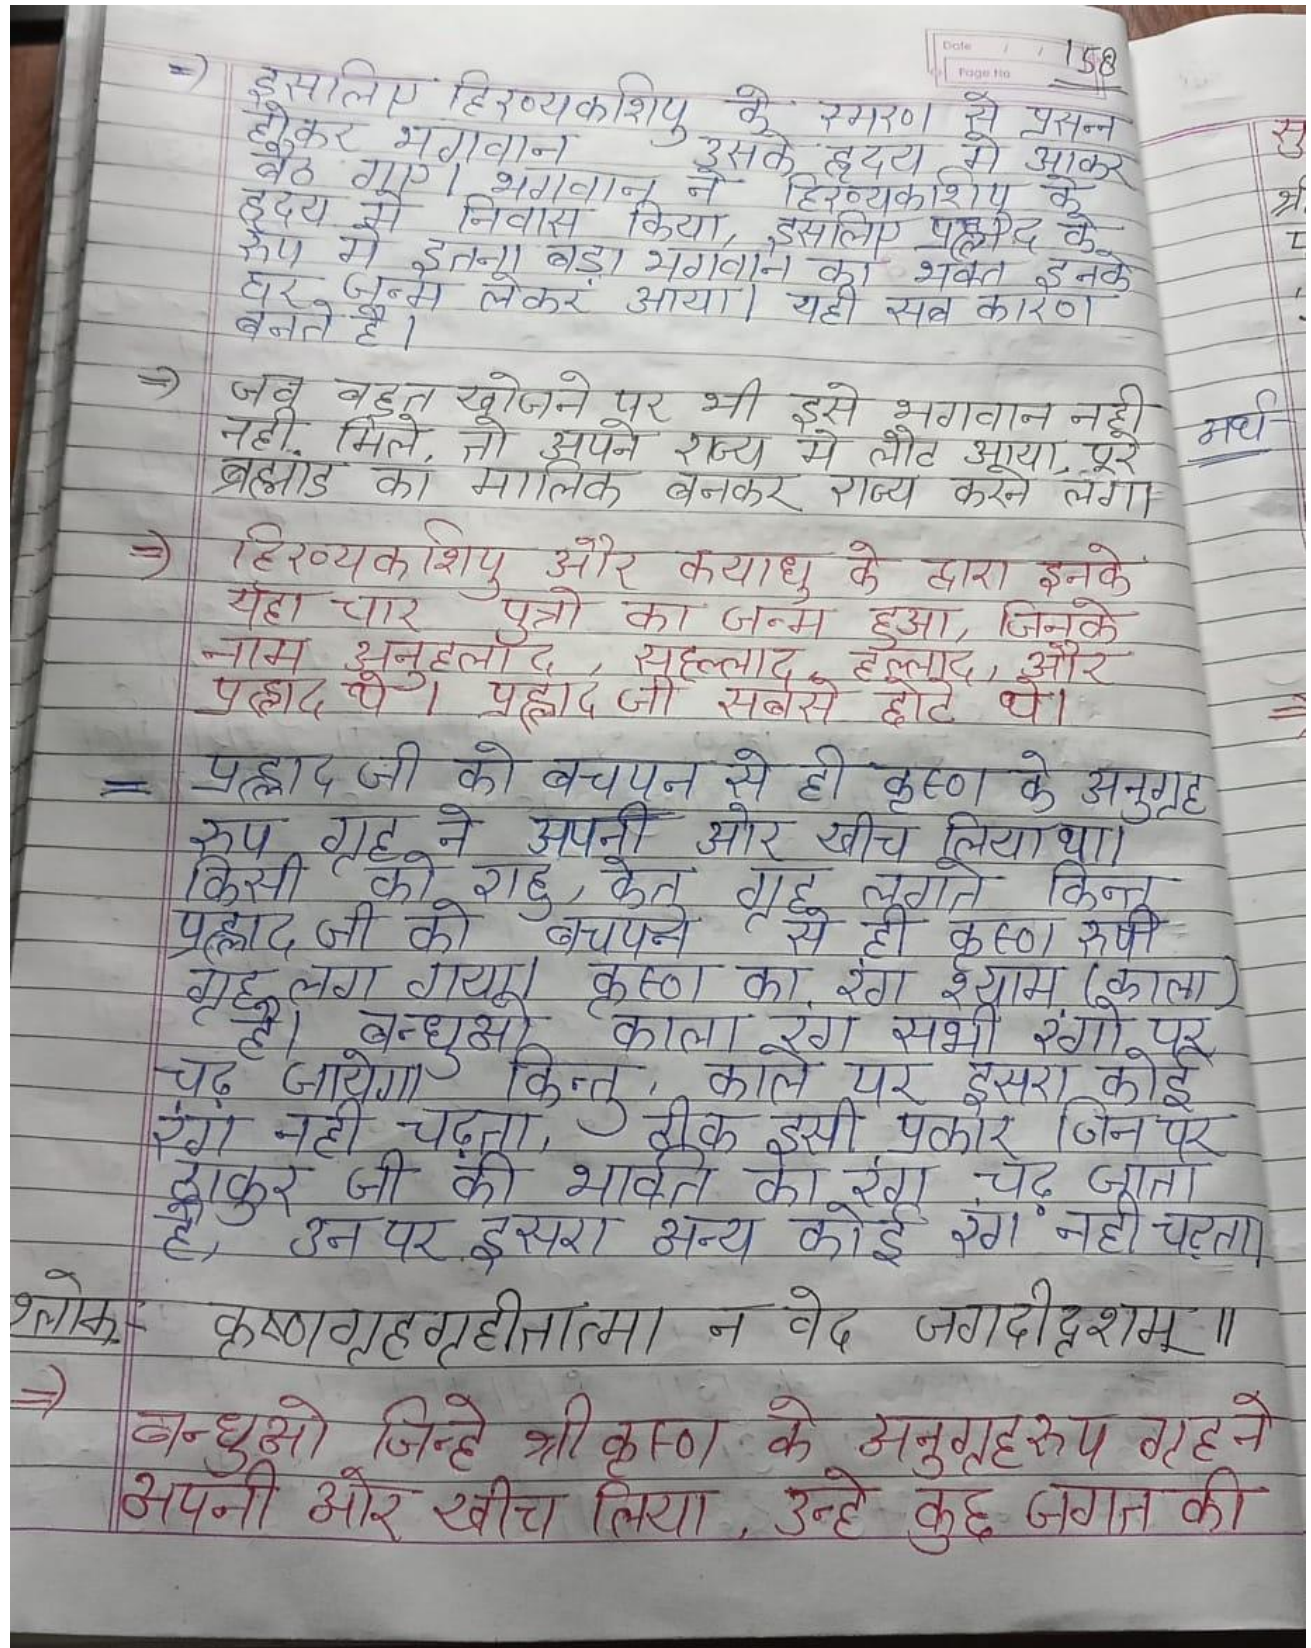 Date / / 158
Page No
=) इसलिए हिरण्यकशिपु के स्मरण से प्रसन्न
होकर भगवान उसके हृदय मे आकर
बैठ गए। भगवान ने हिरण्यकशिपु के
हृदय मे निवास किया, इसलिए प्रह्लाद के
रुप मे इतना बड़ा भगवान का भक्त इनके
घर जन्म लेकर आया। यही सब कारण
बनते है।
=) जब बहुत खोजने पर भी इसे भगवान नही
नही मिले, तो अपने राज्य मे लौट आया, पूरे
ब्रह्मांड का मालिक बनकर राज्य करने लगा
=) हिरण्यकशिपु और कयाधु के द्वारा इनके
यहा चार पुत्रो का जन्म हुआ, जिनके
नाम अनुहलाद, सहल्लाद, हल्लाद, और
प्रह्लाद थे। प्रह्लाद जी सबसे छोटे थे।
= प्रह्लाद जी को बचपन से ही कृष्ण के अनुगृह
रुप गृह ने अपनी ओर खीच लिया था।
किसी को राहु, केतु गृह लगते किन्तु
प्रह्लाद जी को बचपन से ही कृष्ण रुपी
गृह लग गया। कृष्ण का रंग श्याम (काला)
है। बन्धुओ काला रंग सभी रंगो पर
चढ़ जायेगा किन्तु, काले पर दूसरा कोई
रंग नही चढ़ता, ठीक इसी प्रकार जिन पर
ठाकुर जी की भक्ति का रंग चढ़ जाता
है, उन पर दूसरा अन्य कोई रंग नही चढ़ता।
श्लोक- कृष्णगृहगृहीतात्मा न वेद जगदीदृशम् ॥
=) बन्धुओ जिन्हे श्री कृष्ण के अनुगृहरुप गृह ने
अपनी ओर खीच लिया, उन्हे कुछ जगत की
सु
श्री